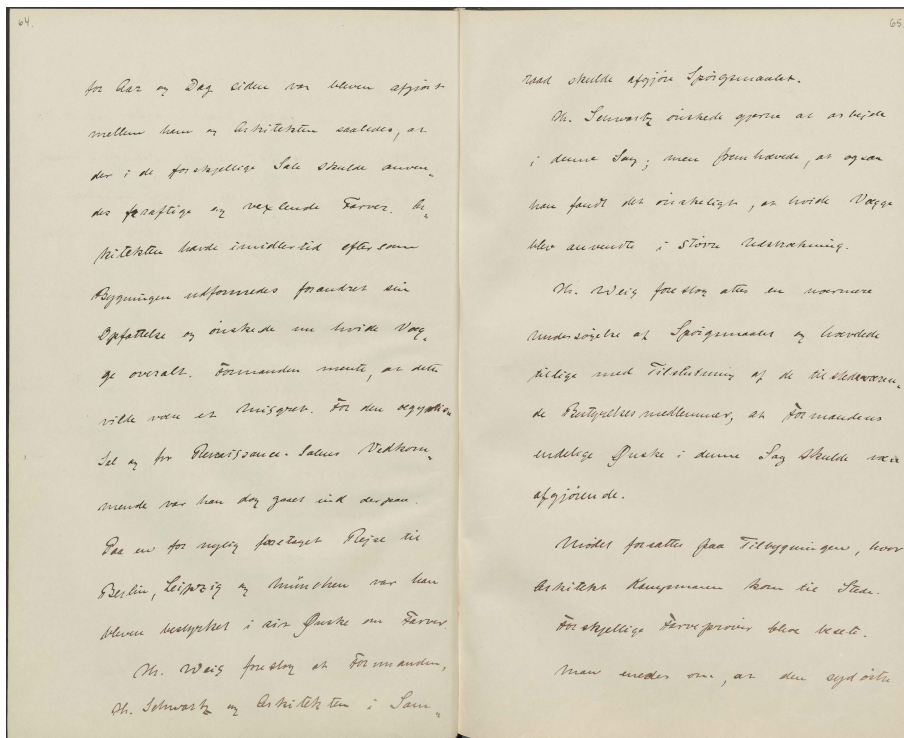 64.
for Aar og Dag siden var bleven afgjort
mellem ham og Arkitekten saaledes, at
der i de forskjellige Sale skulde anven„
des kraftige og vexlende Farver. Ar„
kitekten havde imidlertid eftersom
Bygningen udformedes forandret sin
Opfattelse og ønskede nu hvide Væg„
ge overalt. Formanden mente, at dette
vilde være et Misgreb. For den ægyptiske
Sal og for Renaissance-Salens Vedkom„
mende var han dog gaaet ind derpaa.
Paa en for nylig foretaget Rejse til
Berlin, Leipzig og München var han
bleven bestyrket i sit Ønske om Farver
Hr. Weis foreslog at Formanden,
Hr. Schwartz og Arkitekten i Sam„
65
raad skulde afgjøre Spørgsmaalet.
Hr. Schwartz ønskede gjerne at arbejde
i denne Sag; men fremhævede, at ogsaa
han fandt det ønskeligt, at hvide Vægge
blev anvendte i større Udstrækning.
Hr. Weis foreslog atter en nærmere
Undersøgelse af Spørgsmaalet og hævdede
tillige med Tilslutning af de tilstedeværen„
de Bestyrelsesmedlemmer, at Formandens
endelige Ønske i denne Sag skulde være
afgjørende.
Mødet fortsattes paa Tilbygningen, hvor
Arkitekt Kampmann kom til Stede.
Forskjellige Farveprøver blev besete.
Man enedes om, at den sydøstre